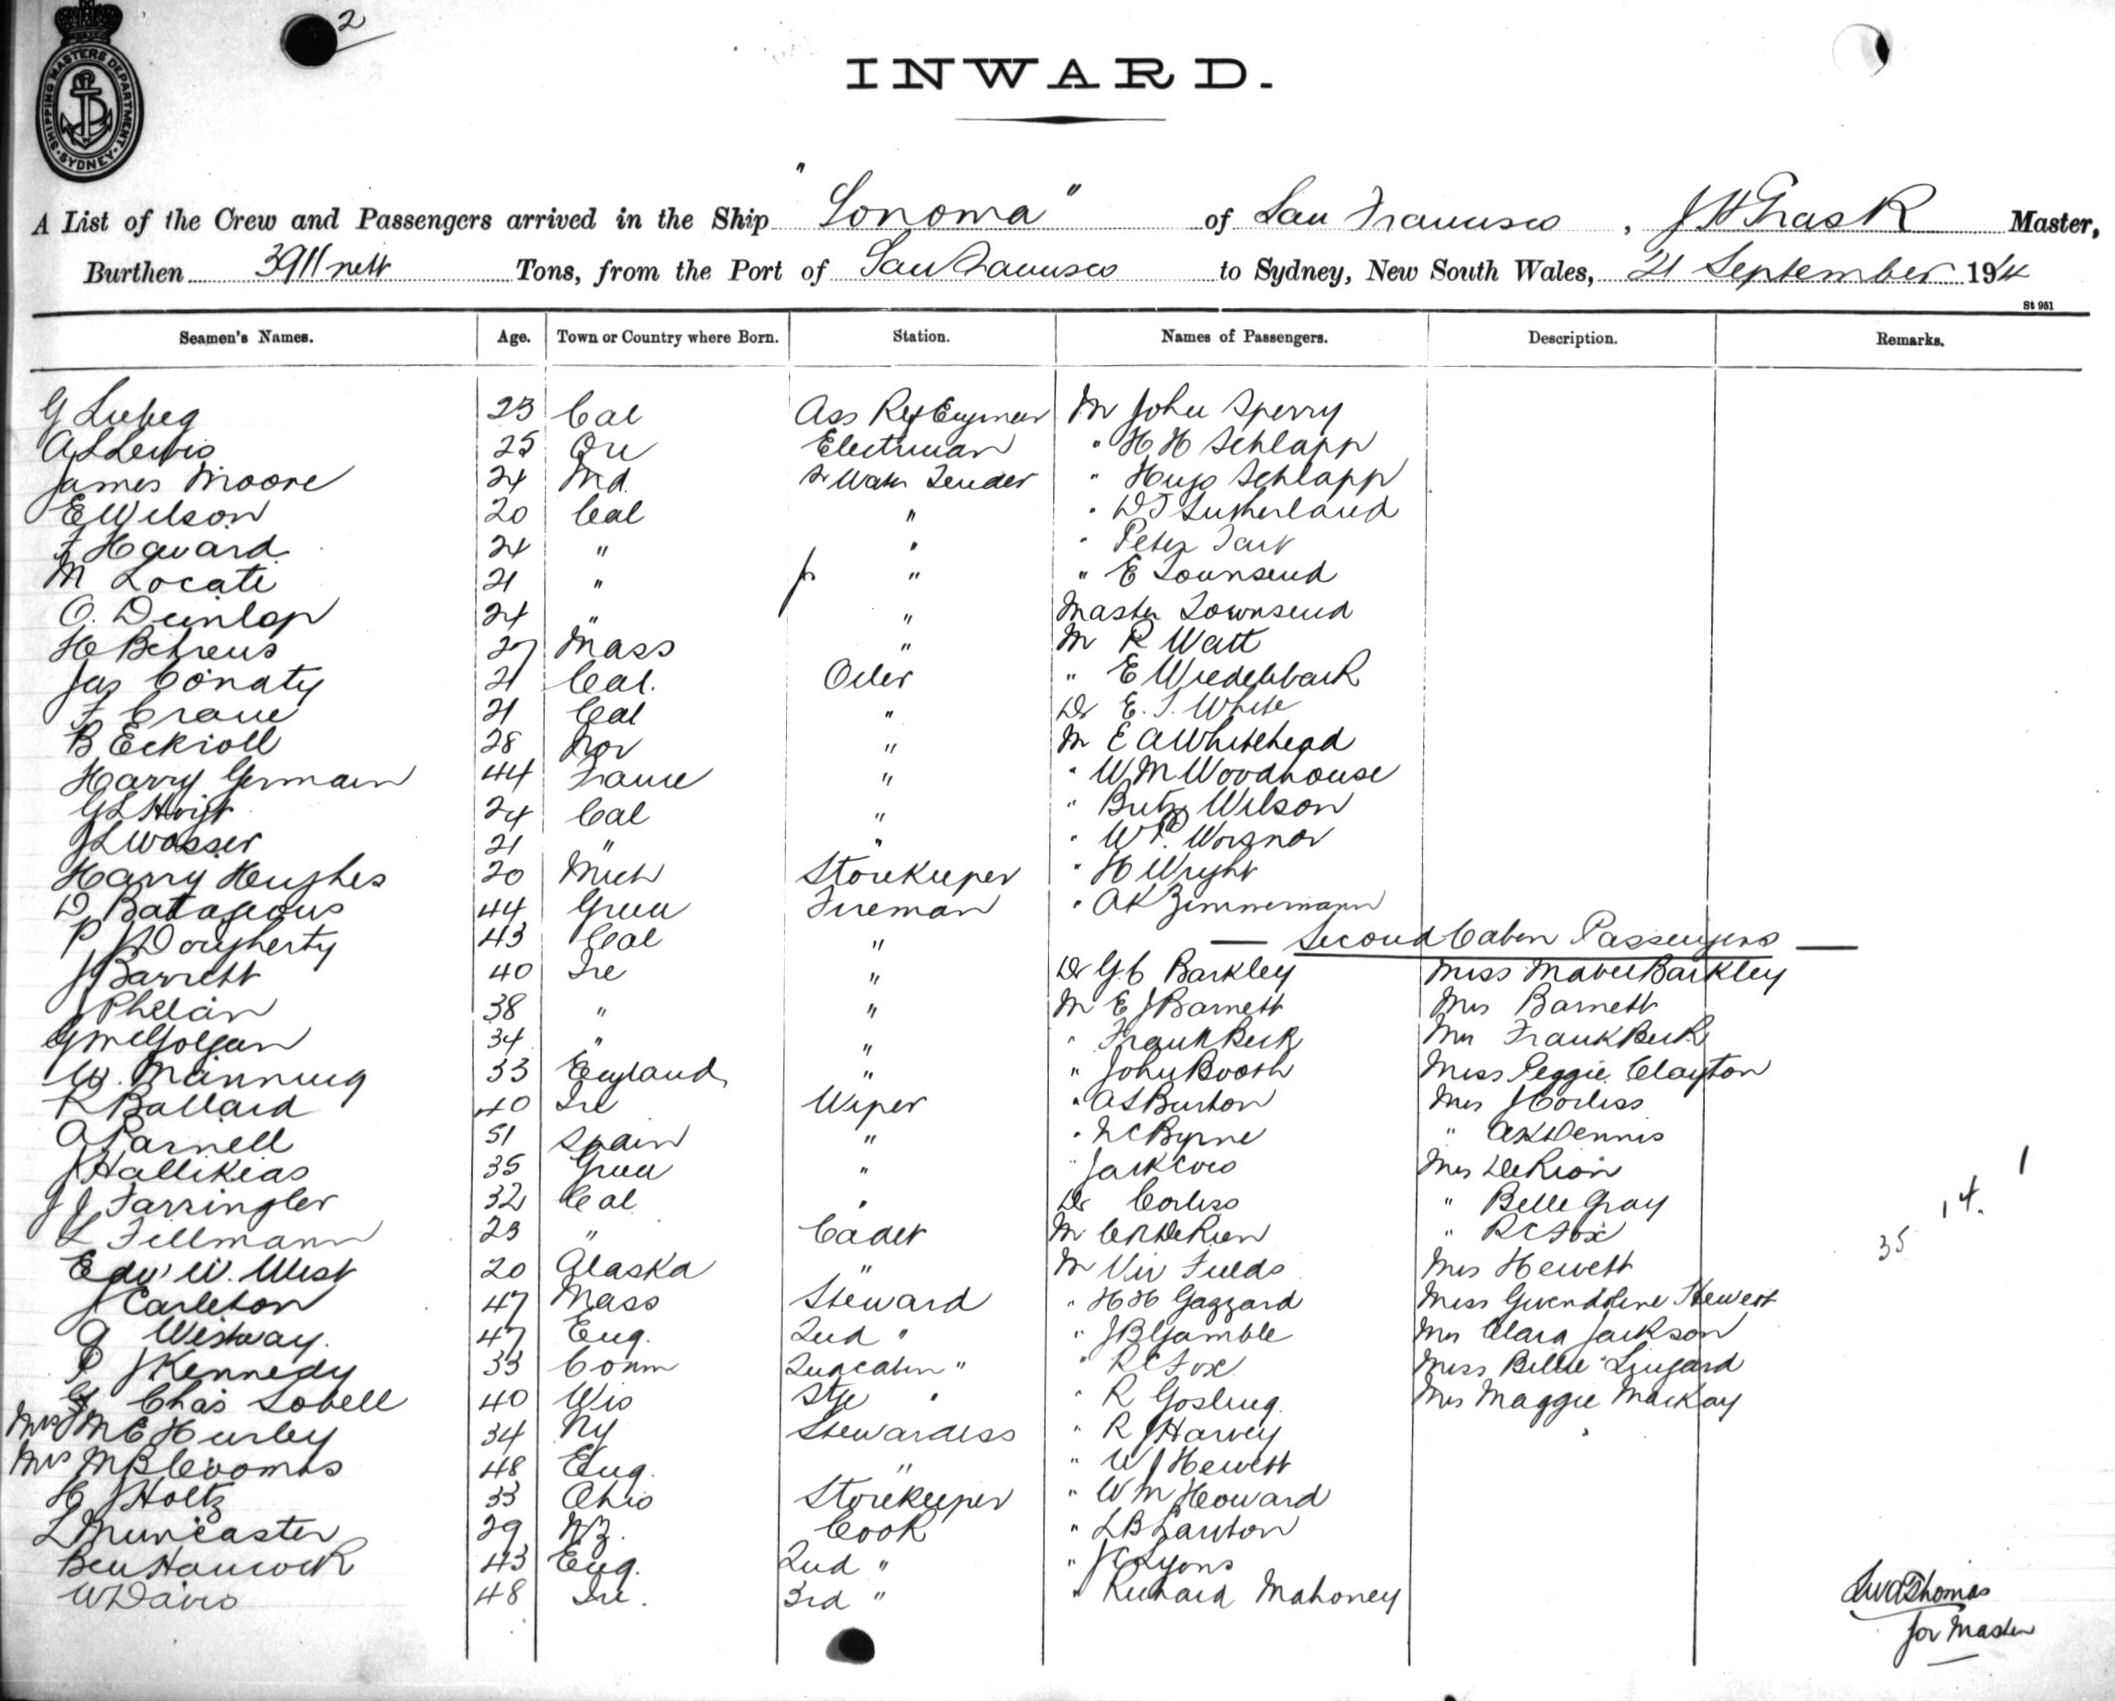 2
SHIPPING MASTERS DEPARTMENT SYDNEY
INWARD.
A List of the Crew and Passengers arrived in the Ship "Sonoma" of San Francisco, J H Trask Master,
Burthen 3911 nett Tons, from the Port of San Francisco to Sydney, New South Wales, 21 September 1914
St 951
Seamen's Names. Age. Town or Country where Born. Station. Names of Passengers. Description. Remarks.
G Lubeg 23 Cal Ass Ref Engineer Mr John Sperry
A L Lewis 25 Ore Electrician " H H Schlapp
James Moore 24 Md. Sr Water Tender " Hugo Schlapp
E Wilson 20 Cal " " D J Sutherland
F Haward 24 " " " Peter Tait
M Locati 21 " Jr " " E Townsend
O. Dunlop 24 " " Master Townsend
H Behrens 27 Mass " Mr R Watt
Jas Conaty 21 Cal. Oiler " E Wiedebback
F Crane 21 Cal " Dr E. J. White
B Eckroll 28 Nor " Mr E A Whitehead
Harry Germain 44 France " " W M Woodhouse
G L Hoyt 24 Cal " " Wilson
J L Wasser 21 " " " W P. Worsnor
Harry Hughes 20 Mich Storekeeper " H Wright
D Batageous 44 Greece Fireman " A K Zimmermann
P J Dougherty 43 Cal " — Second Cabin Passengers —
J Barrett 40 Ire " Dr G C Barkley Miss Mabel Barkley
J Phelan 38 " " Mr E J Barnett Mrs Barnett
G McGolgan 34 " " " Frank Beck Mrs Frank Beck
W. Manning 33 England " " John Booth Miss Peggie Clayton
R Ballard 40 Ire Wiper " A S Burton Mrs J Corliss
A Parnell 51 Spain " " N C Byrne " A K Dennis
J Hallikias 35 Greece " " Jack Cves Mrs De Rion
J J Farringler 32 Cal " Dr Corliss " Belle Gray
L Fillmann 23 " Cadet Mr C R De Rion " R C Fox
Edw W. West 20 Alaska " Mr Viv Fields Mrs Hewett
J Carleton 47 Mass Steward " H H Gazzard Miss Gwendoline Hewett
A Westway. 47 Eng. 2nd " " J B Gamble Mrs Clara Jackson
P J Kennedy 33 Conn 2nd cabin " " R C Fox Miss Billie Lingard
G Chas Sobell 40 Wis Stge " " R Gosling. Mrs Maggie Mackay
Mrs M E Hurley 34 NY Stewardess " R J Harvey
Mrs M B Coombs 48 Eng. " " W J Hewett
H J Holtz 33 Ohio Storekeeper " W M Howard
L Muncaster 29 NZ. Cook " L B Lawton
Ben Hancock 43 Eng. 2nd " " J C Lyons
W Davis 48 Ire. 3rd " " Richard Mahoney
1
14.
35
Thomas
for Master